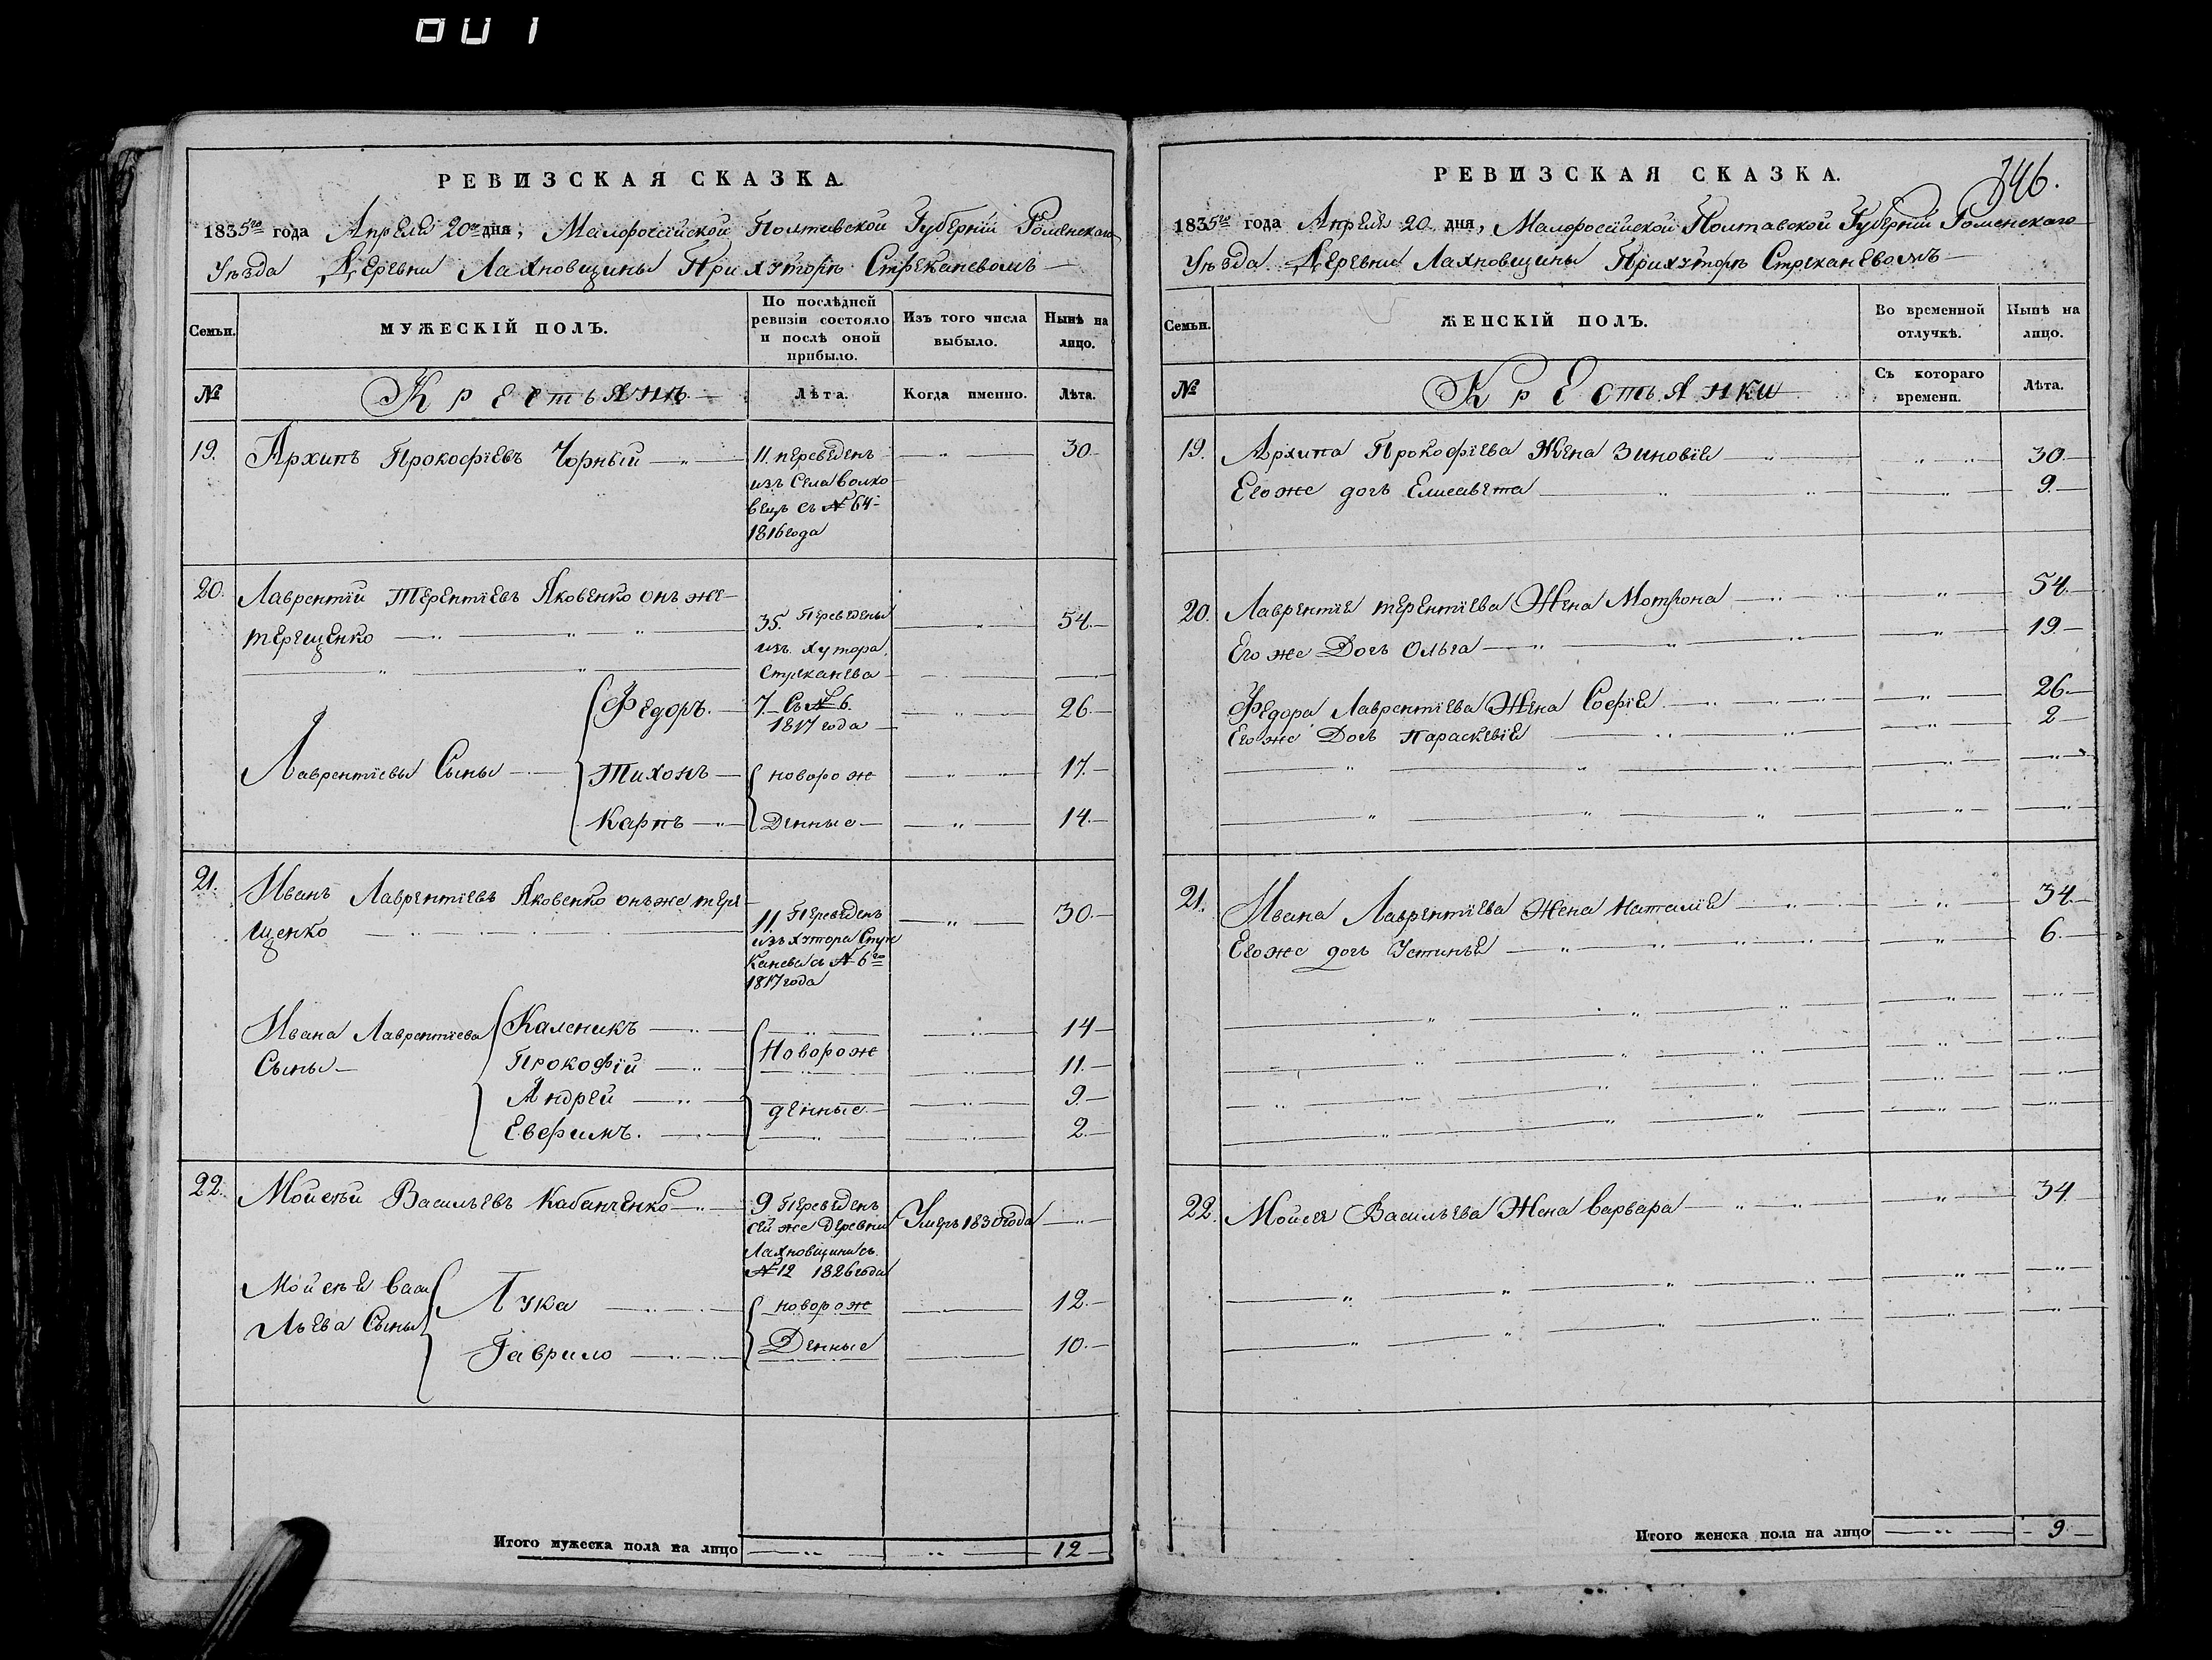 001
РЕВИЗСКАЯ СКАЗКА.
1835го года Апреля 20го дня, Малоросійской Полтавской Губерніи Роменскаго
Уѣзда Деревни Лахновщины При хуторѣ Стреканевомъ
Семьи.
МУЖЕСКІЙ ПОЛЪ.
По послѣдней ревизіи состояло и послѣ оной прибыло.
Изъ того числа выбыло.
Нынѣ на лицо.
№
Крестьянѣ
Лѣта.
Когда именно.
Лѣта.
19. Архипъ Прокофіевъ Чорный 11. переведенъ 30
изъ Села Волко
вецъ съ № 64
1816 года
20. Лаврентій Терентіевъ Яковенко онъ же
терещенко 35. Переведены 54
изъ хутора
Стреканева
Лаврентіевы Сыны
Федоръ 7 Съ № 6. 26
1817 года
Тихонъ новорож 17
Карпъ Денные 14
21. Иванъ Лаврентіевъ Яковенко онъ же тере
щенко 11. Переведенъ 30
изъ хутора Стре
канева съ № 6го
1817 года
Ивана Лаврентіева
Сыны
Каленикъ 14
Прокофій Новорож 11
Андрей денные 9
Евфимъ. 2
22. Мойсей Васильевъ Кабанченко 9 Переведенъ Умеръ 1830 года
сей же Деревни
Лахновщины съ
№ 12 1826 года
Мойсея Васи
льева Сыны
Лука новорож 12
Гаврило Денные 10
Итого мужеска пола на лицо 12
346.
РЕВИЗСКАЯ СКАЗКА.
1835го года Апреля 20 дня, Малоросійской Полтавской Губерніи Роменскаго
Уѣзда Деревни Лахновщины При хуторѣ Стреканевомъ
Семьи.
ЖЕНСКІЙ ПОЛЪ.
Во временной отлучкѣ.
Нынѣ на лицо.
№
Крестьянки
Съ котораго времени.
Лѣта.
19. Архипа Прокофіева Жена Зиновія 30
Его же дочь Елисавета 9
20. Лаврентія терентіева Жена Мотрона 54
Его же Дочь Ольга 19
Федора Лаврентіева Жена Софія 26
Его же Дочь Параскевія 2
21. Ивана Лаврентіева Жена Наталія 34
Его же дочь Устинья 6
22. Мойсея Васильева Жена Варвара 34
Итого женска пола на лицо 9